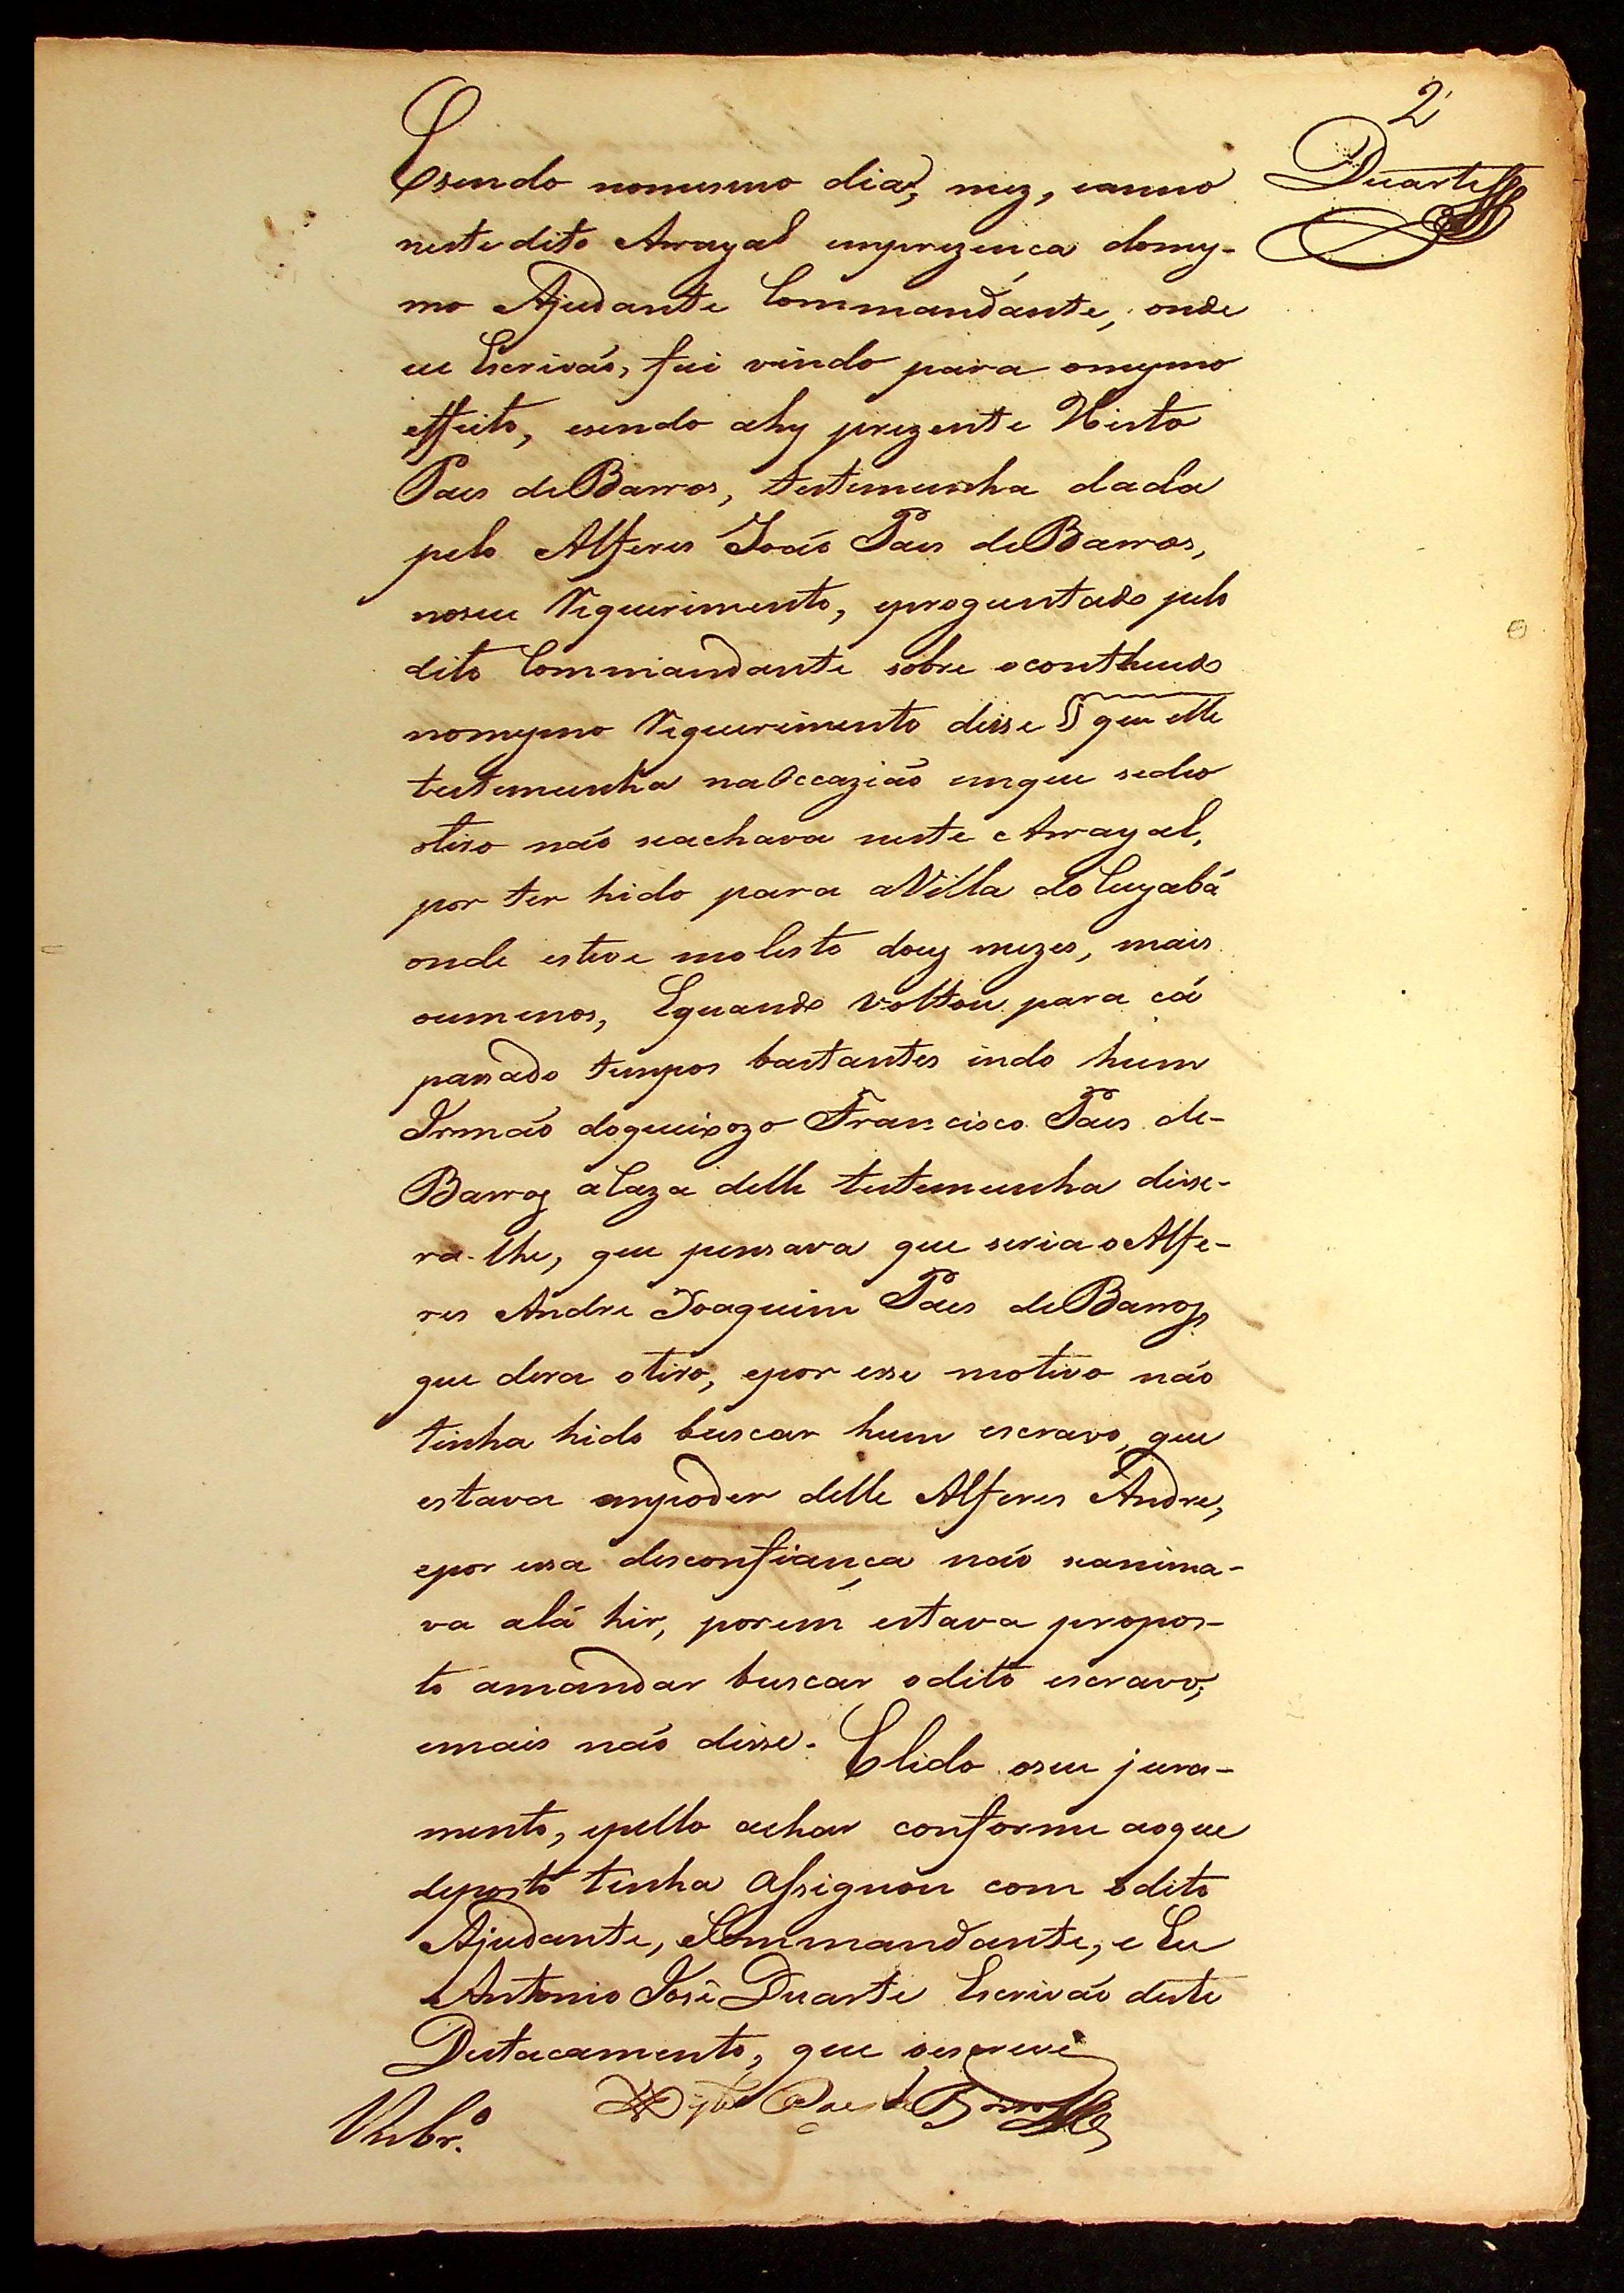 2
Duarte
Esendo nomesmo dia, mez, eanno
neste dito Arrayal emprezença domes-
mo Ajudante Commandante, onde
eu Escrivaõ, fui vindo para omesmo
effeito, esendo ahy prezente Xisto
Paes deBarros, testemunha dada
pelo Alferes Joaõ Paes deBarros,
noseu Requerimento, eproguntado pelo
dito Commandante sobre ocontheudo
nomesmo Requerimento disse § que elle
testemunha naOccaziaõ emque sedeo
otiro naõ seachava neste Arrayal,
por ter hido para aVilla doCuyabá
onde esteve molesto doez mezes, mais
oumenos, Equando voltou para cá
passado tempos bastantes indo hum
Irmaõ doqueixozo Francisco Paes de-
Barros áCaza delle testemunha disse-
ra-lhe, que pensava que seria oAlfe-
res Andre Joaquim Paes deBarros
que dera otiro, epor esse motivo naõ
tinha hido buscar hum escravo, que
estava empoder delle Alferes Andre,
epor essa desconfiança naõ seanima-
va alá hir, porém estava propos-
to amandar buscar odito escravo,
emais naõ disse. Elido oseu jura-
mento, epello achar conforme aoque
deposto tinha Assignou com odito
Ajudante, eCommandante, e Eu
Antonio José Duarte Escrivaõ deste
Destacamento, que oescrevi
Xisto Paes de Barros